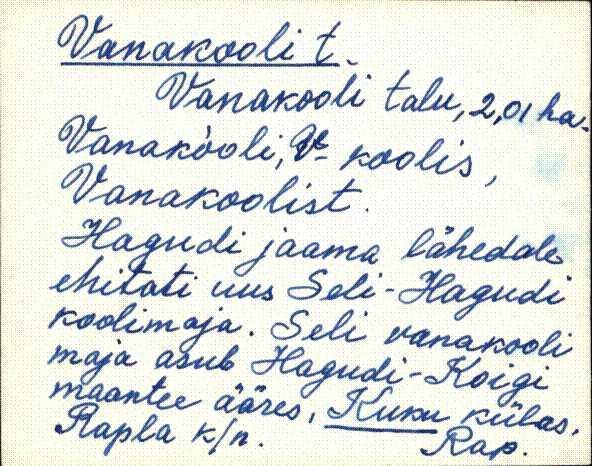 Vanakooli t.
Vanakooli talu, 2,01 ha.
Vanakòoli, V- koolis,
Vanakoolist.
Hagudi jaama lähedale
ehitati uus Seli-Hagudi
koolimaja. Seli vanakooli
maja asub Hagudi-Koigi
maantee ääres, Kuku külas,
Rapla k/n. Rap.